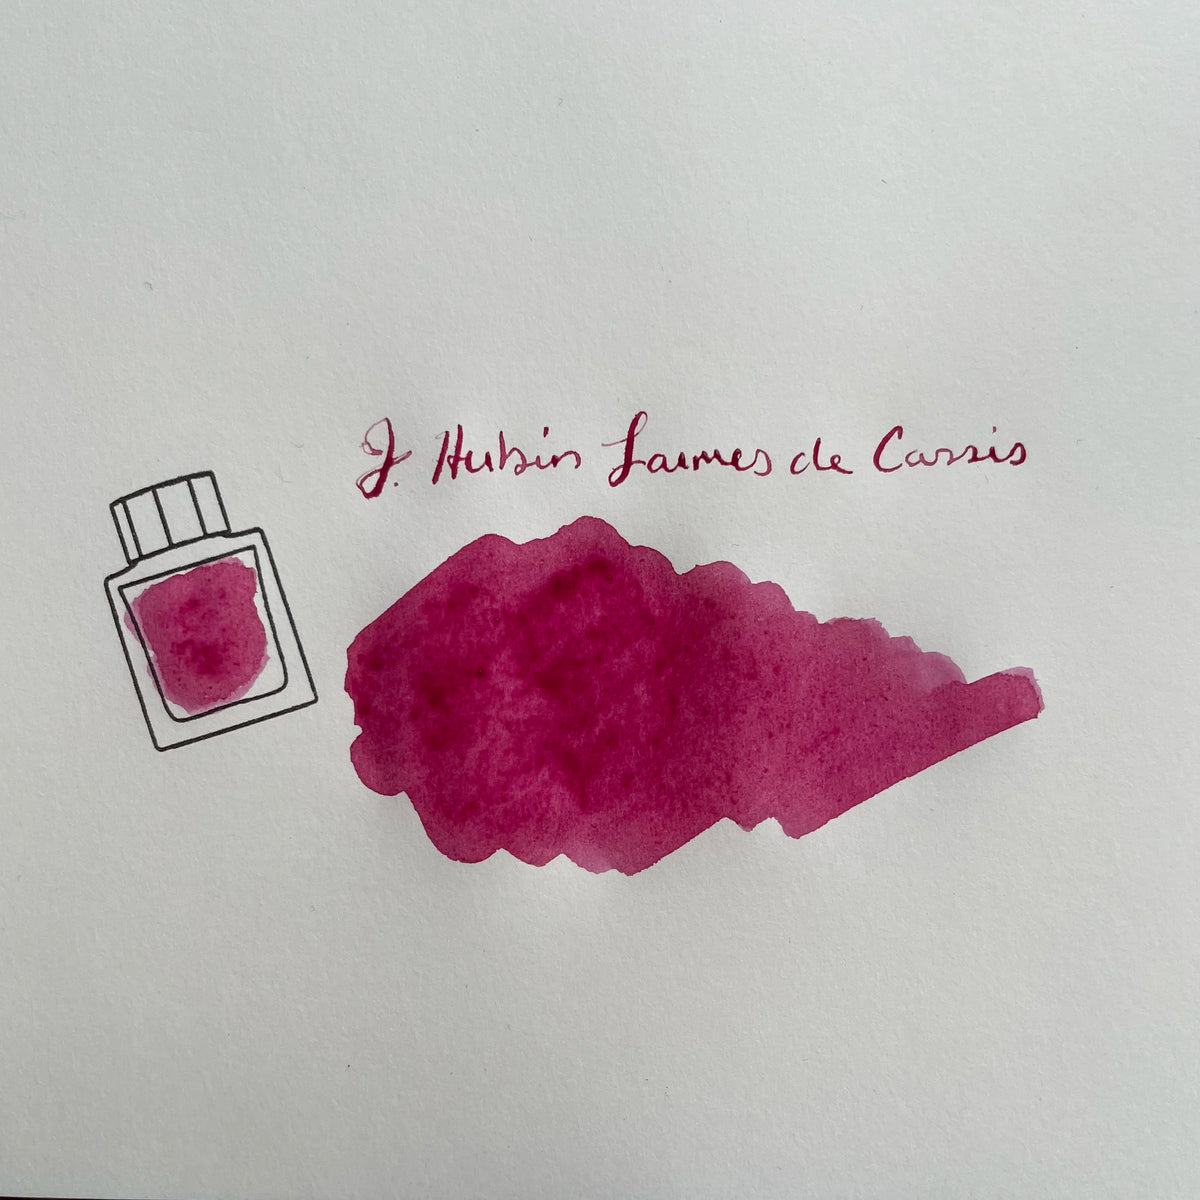 J. Hubin Larmes de Cassis